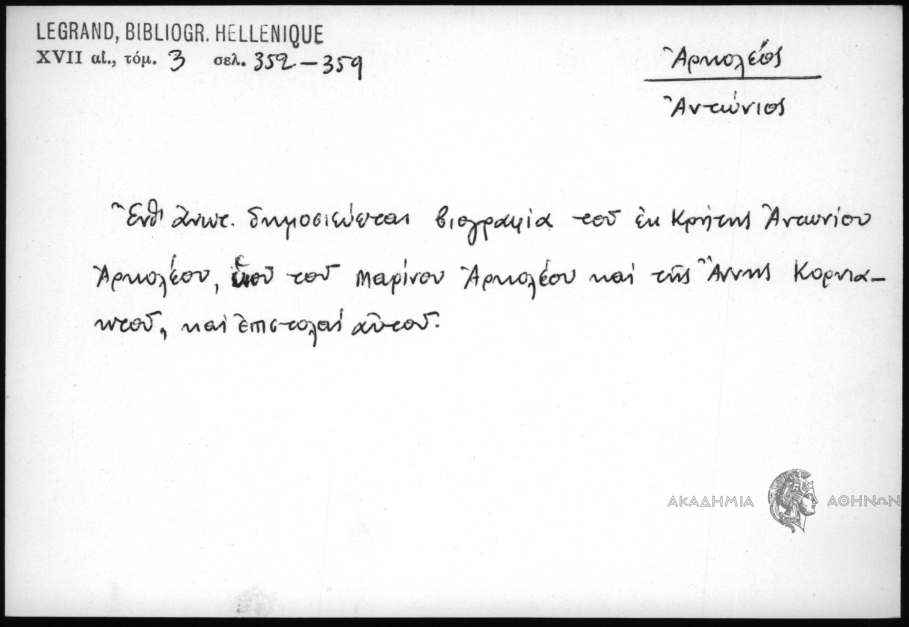 LEGRAND, BIBLIOGR. HELLENIQUE
XVII αἰ., τόμ. 3 σελ. 352–359
Ἀρκολέος
Ἀντώνιος
Ἔνθ' ἀνωτ. δημοσιεύεται βιογραφία τοῦ ἐκ Κρήτης Ἀντωνίου
Ἀρκολέου, υἱοῦ τοῦ Μαρίνου Ἀρκολέου καὶ τῆς Ἄννης Κορνια–
κτοῦ, καὶ ἐπιστολαὶ αὐτοῦ.
ΑΚΑΔΗΜΙΑ ΑΘΗΝΩΝ